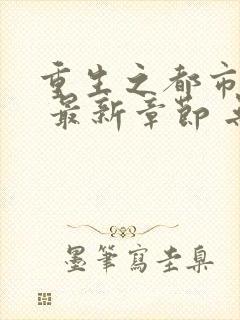 重生之都市
最新章節
墨筆寫圭臬